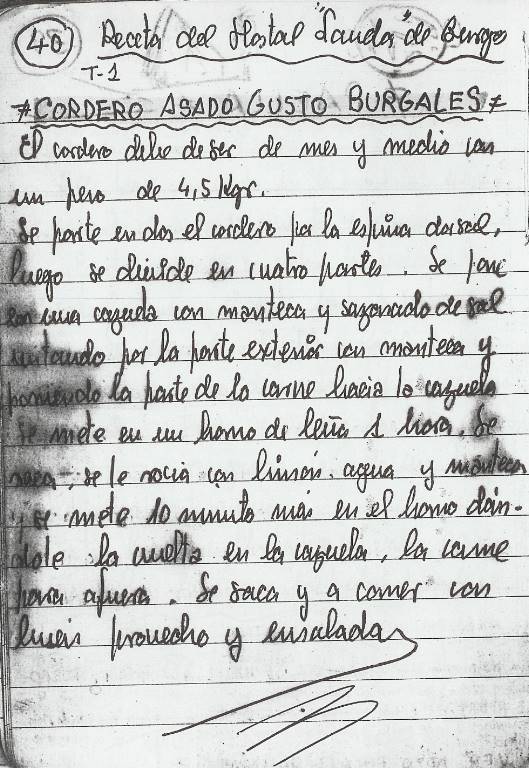 40 Receta del Hostal "Landa" de Burgos
T-1
*CORDERO ASADO GUSTO BURGALES*
El cordero debe de ser de mes y medio con
un peso de 4,5 Kgr.
Se parte en dos el cordero por la espina dorsal,
luego se divide en cuatro partes. Se pone
en una cazuela con manteca y sazonado de sal
untando por la parte exterior con manteca y
poniendo la parte de la carne hacia la cazuela
Se mete en un horno de leña 1 hora. Se
saca, se le rocia con limón, agua y manteca
y se mete 10 minuto más en el horno dán-
dole la vuelta en la cazuela, la carne
para afuera. Se saca y a comer con
buen provecho y ensalada